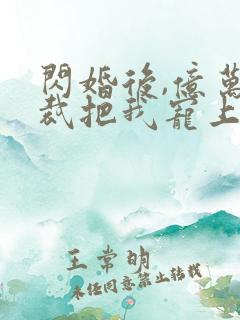 閃婚後,億萬
裁把我寵上
王常明
未经同意禁止转载